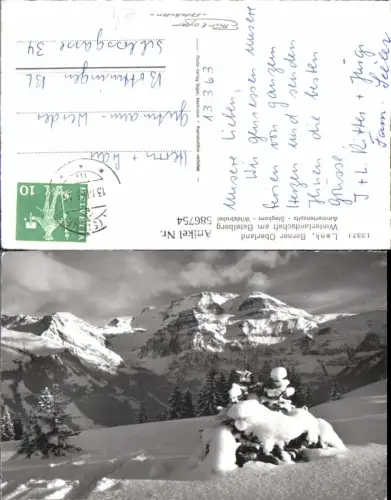 13371 Lenk, Berner Oberland
Winterlandschaft am Betelberg
Ammertenspitz - Steghorn - Wildstrubel
Artikel Nr. 586754
13.3.63
Unsere Lieben,
Wir geniessen unsere
Ferien von ganzem
Herzen und senden
Ihnen die besten
Grüsse
I + L. Ritter + Jürg
Fam.
Herrn + Frau
Gutmann - Werder
Bottmingen BL
Schlossgasse 34
HELVETIA
10